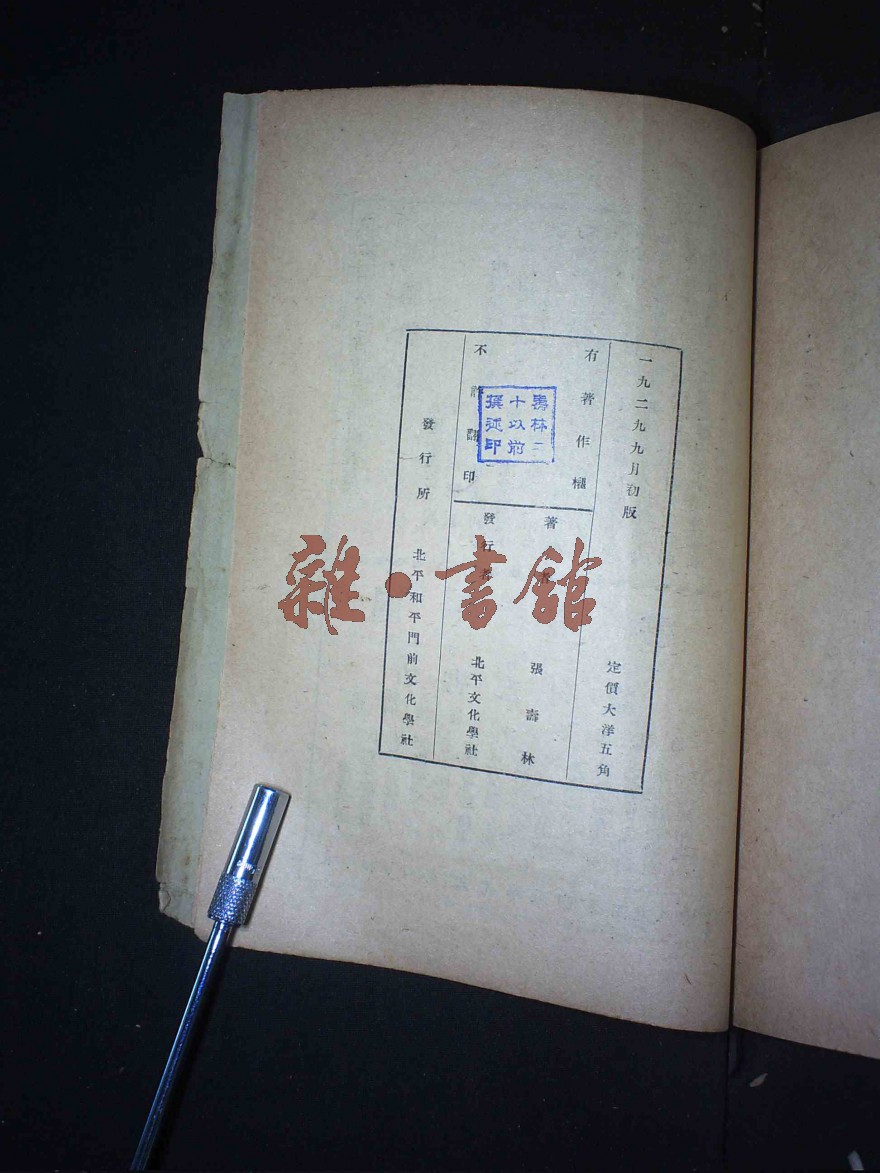 一九二九九月初版
定價大洋五角
有著作權
不許翻印
壽林二
十以前
撰述印
著者
張壽林
發行者
北平文化學社
發行所
北平和平門前文化學社
雜·書館